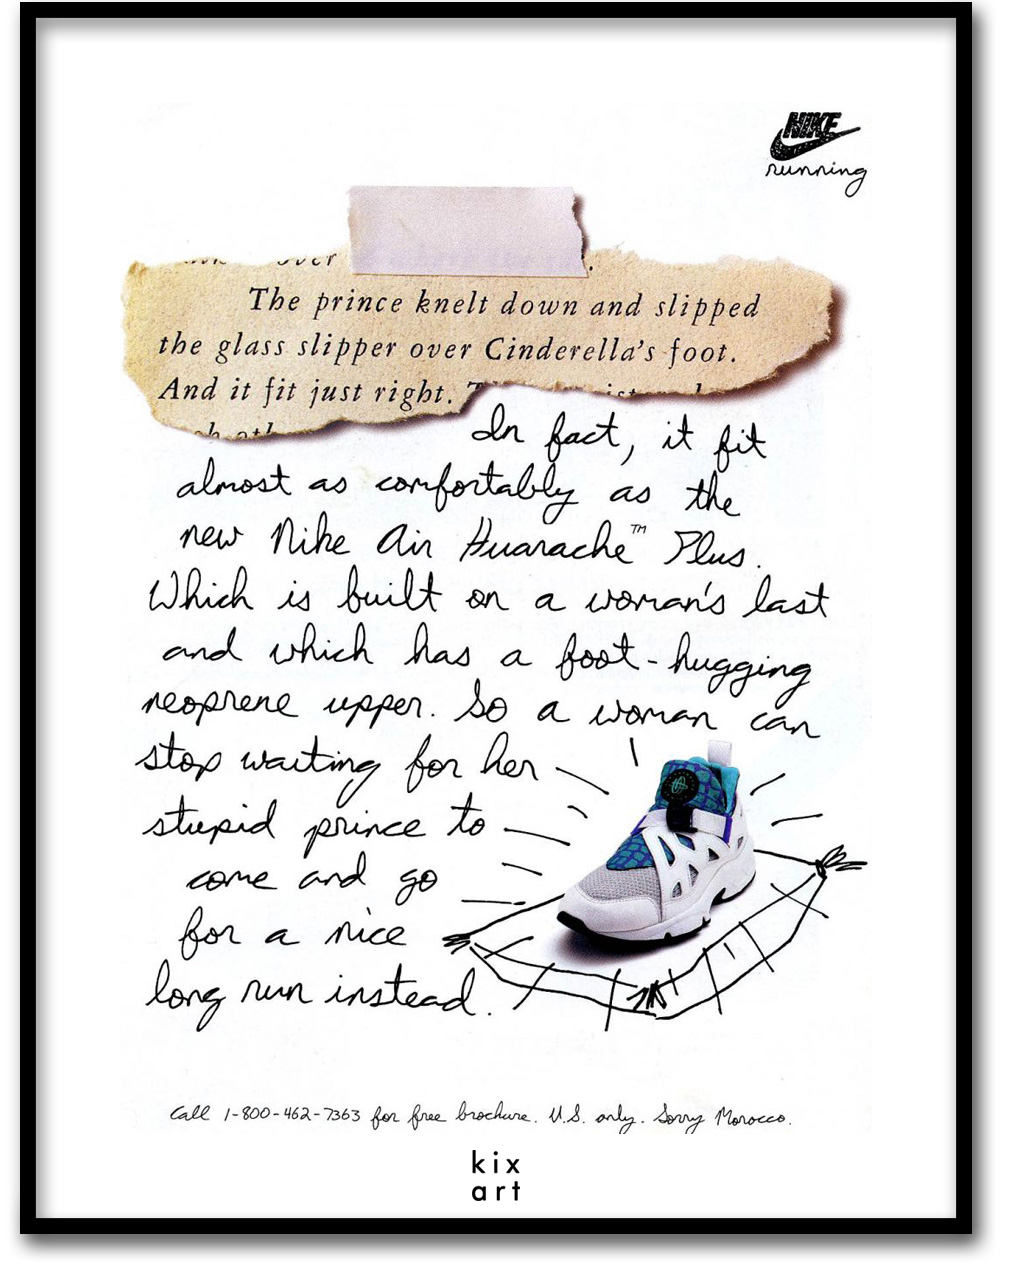 NIKE
running
over
The prince knelt down and slipped
the glass slipper over Cinderella's foot.
And it fit just right.
In fact, it fit
almost as comfortably as the
new Nike Air Huarache™ Plus.
Which is built on a woman's last
and which has a foot-hugging
neoprene upper. So a woman can
stop waiting for her
stupid prince to
come and go
for a nice
long run instead.
Call 1-800-462-7363 for free brochure. U.S. only. Sorry Morocco.
kix
art